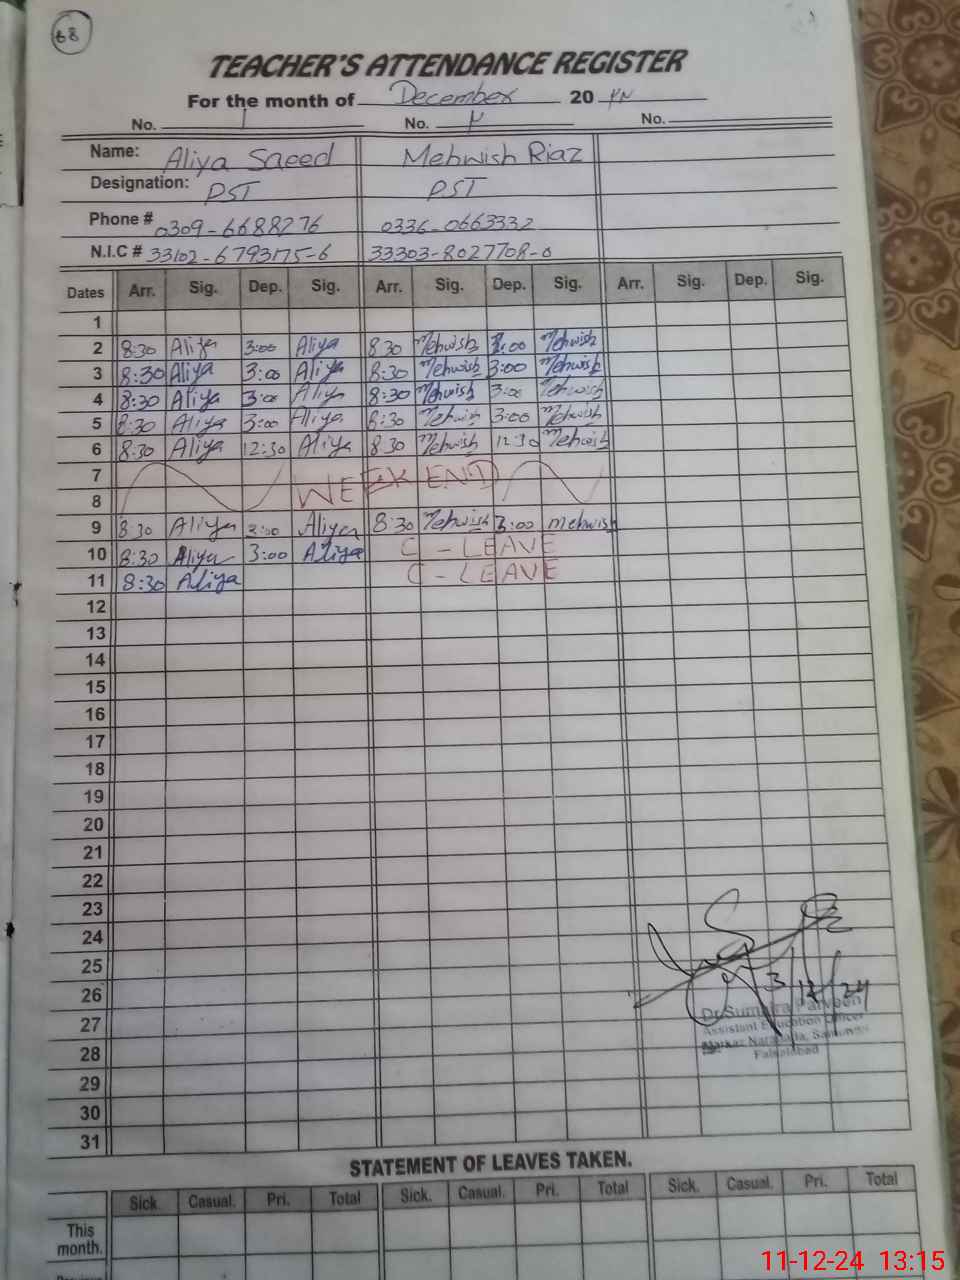 68
TEACHER'S ATTENDANCE REGISTER
For the month of December 20
No. 1 No. No.
Name: Aliya Saeed Mehwish Riaz
Designation: PST PST
Phone # 0309-6688276 0336-0663332
N.I.C # 33102-6793175-6 33303-8027708-0
Dates Arr. Sig. Dep. Sig. Arr. Sig. Dep. Sig. Arr. Sig. Dep. Sig.
1
2 8:30 Aliya 3:00 Aliya 8:30 Mehwish 3:00 Mehwish
3 8:30 Aliya 3:00 Aliya 8:30 Mehwish 3:00 Mehwish
4 8:30 Aliya 3:00 Aliya 8:30 Mehwish 3:00 Mehwish
5 8:30 Aliya 3:00 Aliya 8:30 Mehwish 3:00 Mehwish
6 8:30 Aliya 12:30 Aliya 8:30 Mehwish 12:30 Mehwish
7 WEEKEND
8
9 8:30 Aliya 3:00 Aliya 8:30 Mehwish 3:00 Mehwish
10 8:30 Aliya 3:00 Aliya C-LEAVE
11 8:30 Aliya C-LEAVE
12
13
14
15
16
17
18
19
20
21
22
23
24
25
26 3/12/24
27 Dr Sumaira Parveen
Assistant Education Officer
28 Markaz Faisalabad
29
30
31
STATEMENT OF LEAVES TAKEN.
Sick. Casual. Pri. Total Sick. Casual. Pri. Total Sick. Casual. Pri. Total
This
month.
11-12-24 13:15